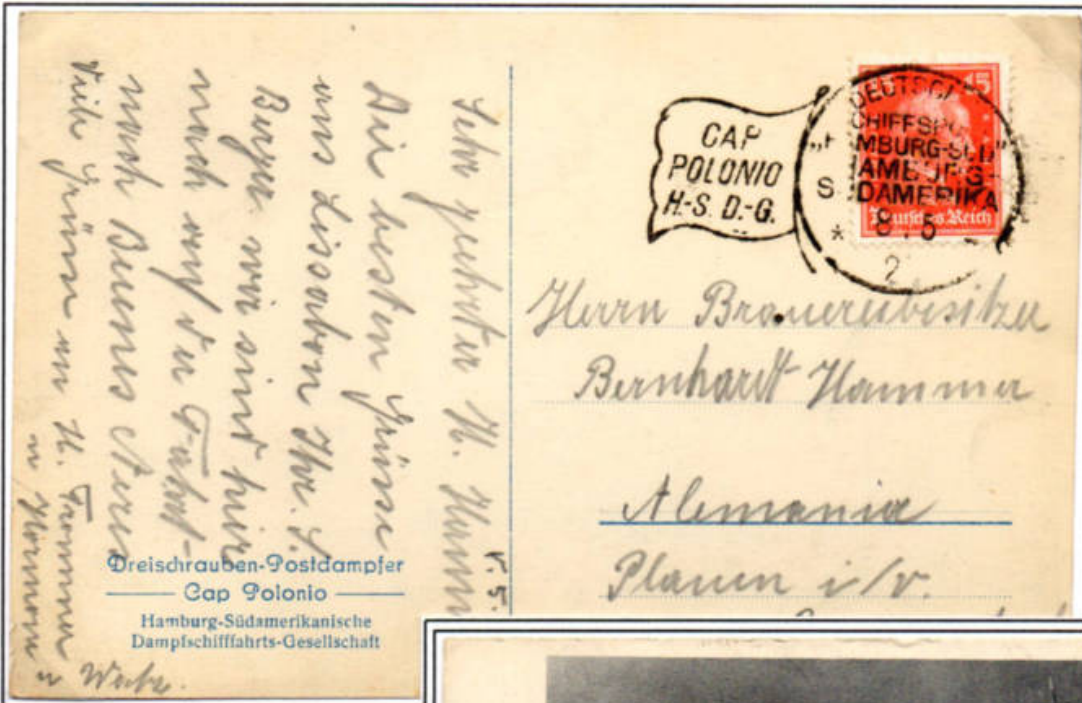 Sehr geehrter H.
Die besten Grüsse
aus Lissabon Ihr.
wir sind hier
noch auf der Fahrt
nach Buenos Aires
Viele Grüsse an H. Frommer
u Hörmann
u
V. 5.
Dreischrauben-Postdampfer
Cap Polonio
Hamburg-Südamerikanische
Dampfschifffahrts-Gesellschaft
CAP
POLONIO
H.-S. D.-G.
15
DEUTSCH
CHIFFSPO
MBURG-SÜD"
AMBURG-
S DAMERIKA
Deutsches Reich
* 8 . 5
2
Herrn Brauereibesitzer
Bernhardt Hammer
Alemania
Plauen i/V.